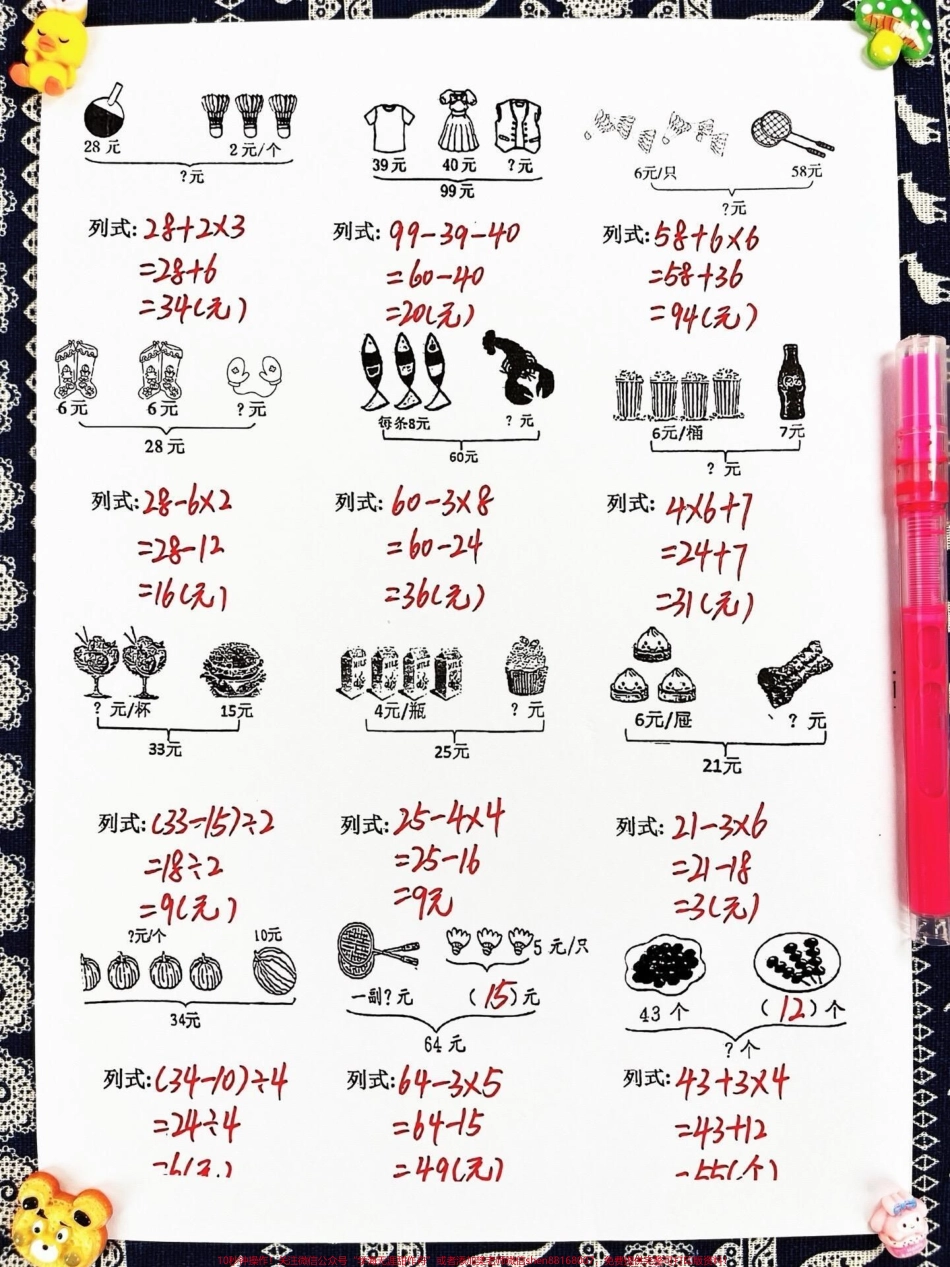 28 元 2 元/个 39 元 40 元 ?元 6元/只 58元
?元 99 元 ?元
列式:28+2×3 列式: 99-39-40 列式:58+6×6
=28+6 =60-40 =58+36
=34(元) =20(元) =94(元)
6 元 6 元 ? 元 每条8元 ? 元 6元/桶 7元
28 元 60元 ? 元
列式:28-6×2 列式:60-3×8 列式: 4×6+7
=28-12 =60-24 =24+7
=16(元) =36(元) =31(元)
? 元/杯 15元 4元/瓶 ? 元 6元/屉 ? 元
33元 25元 21元
列式:(33-15)÷2 列式:25-4×4 列式: 21-3×6
=18÷2 =25-16 =21-18
=9(元) =9元 =3(元)
?元/个 10元 5 元/只
一副?元 (15)元 43 个 (12)个
34元 64 元 ?个
列式:(34-10)÷4 列式:64-3×5 列式:43+3×4
=24÷4 =64-15 =43+12
=6(元) =49(元) =55(个)